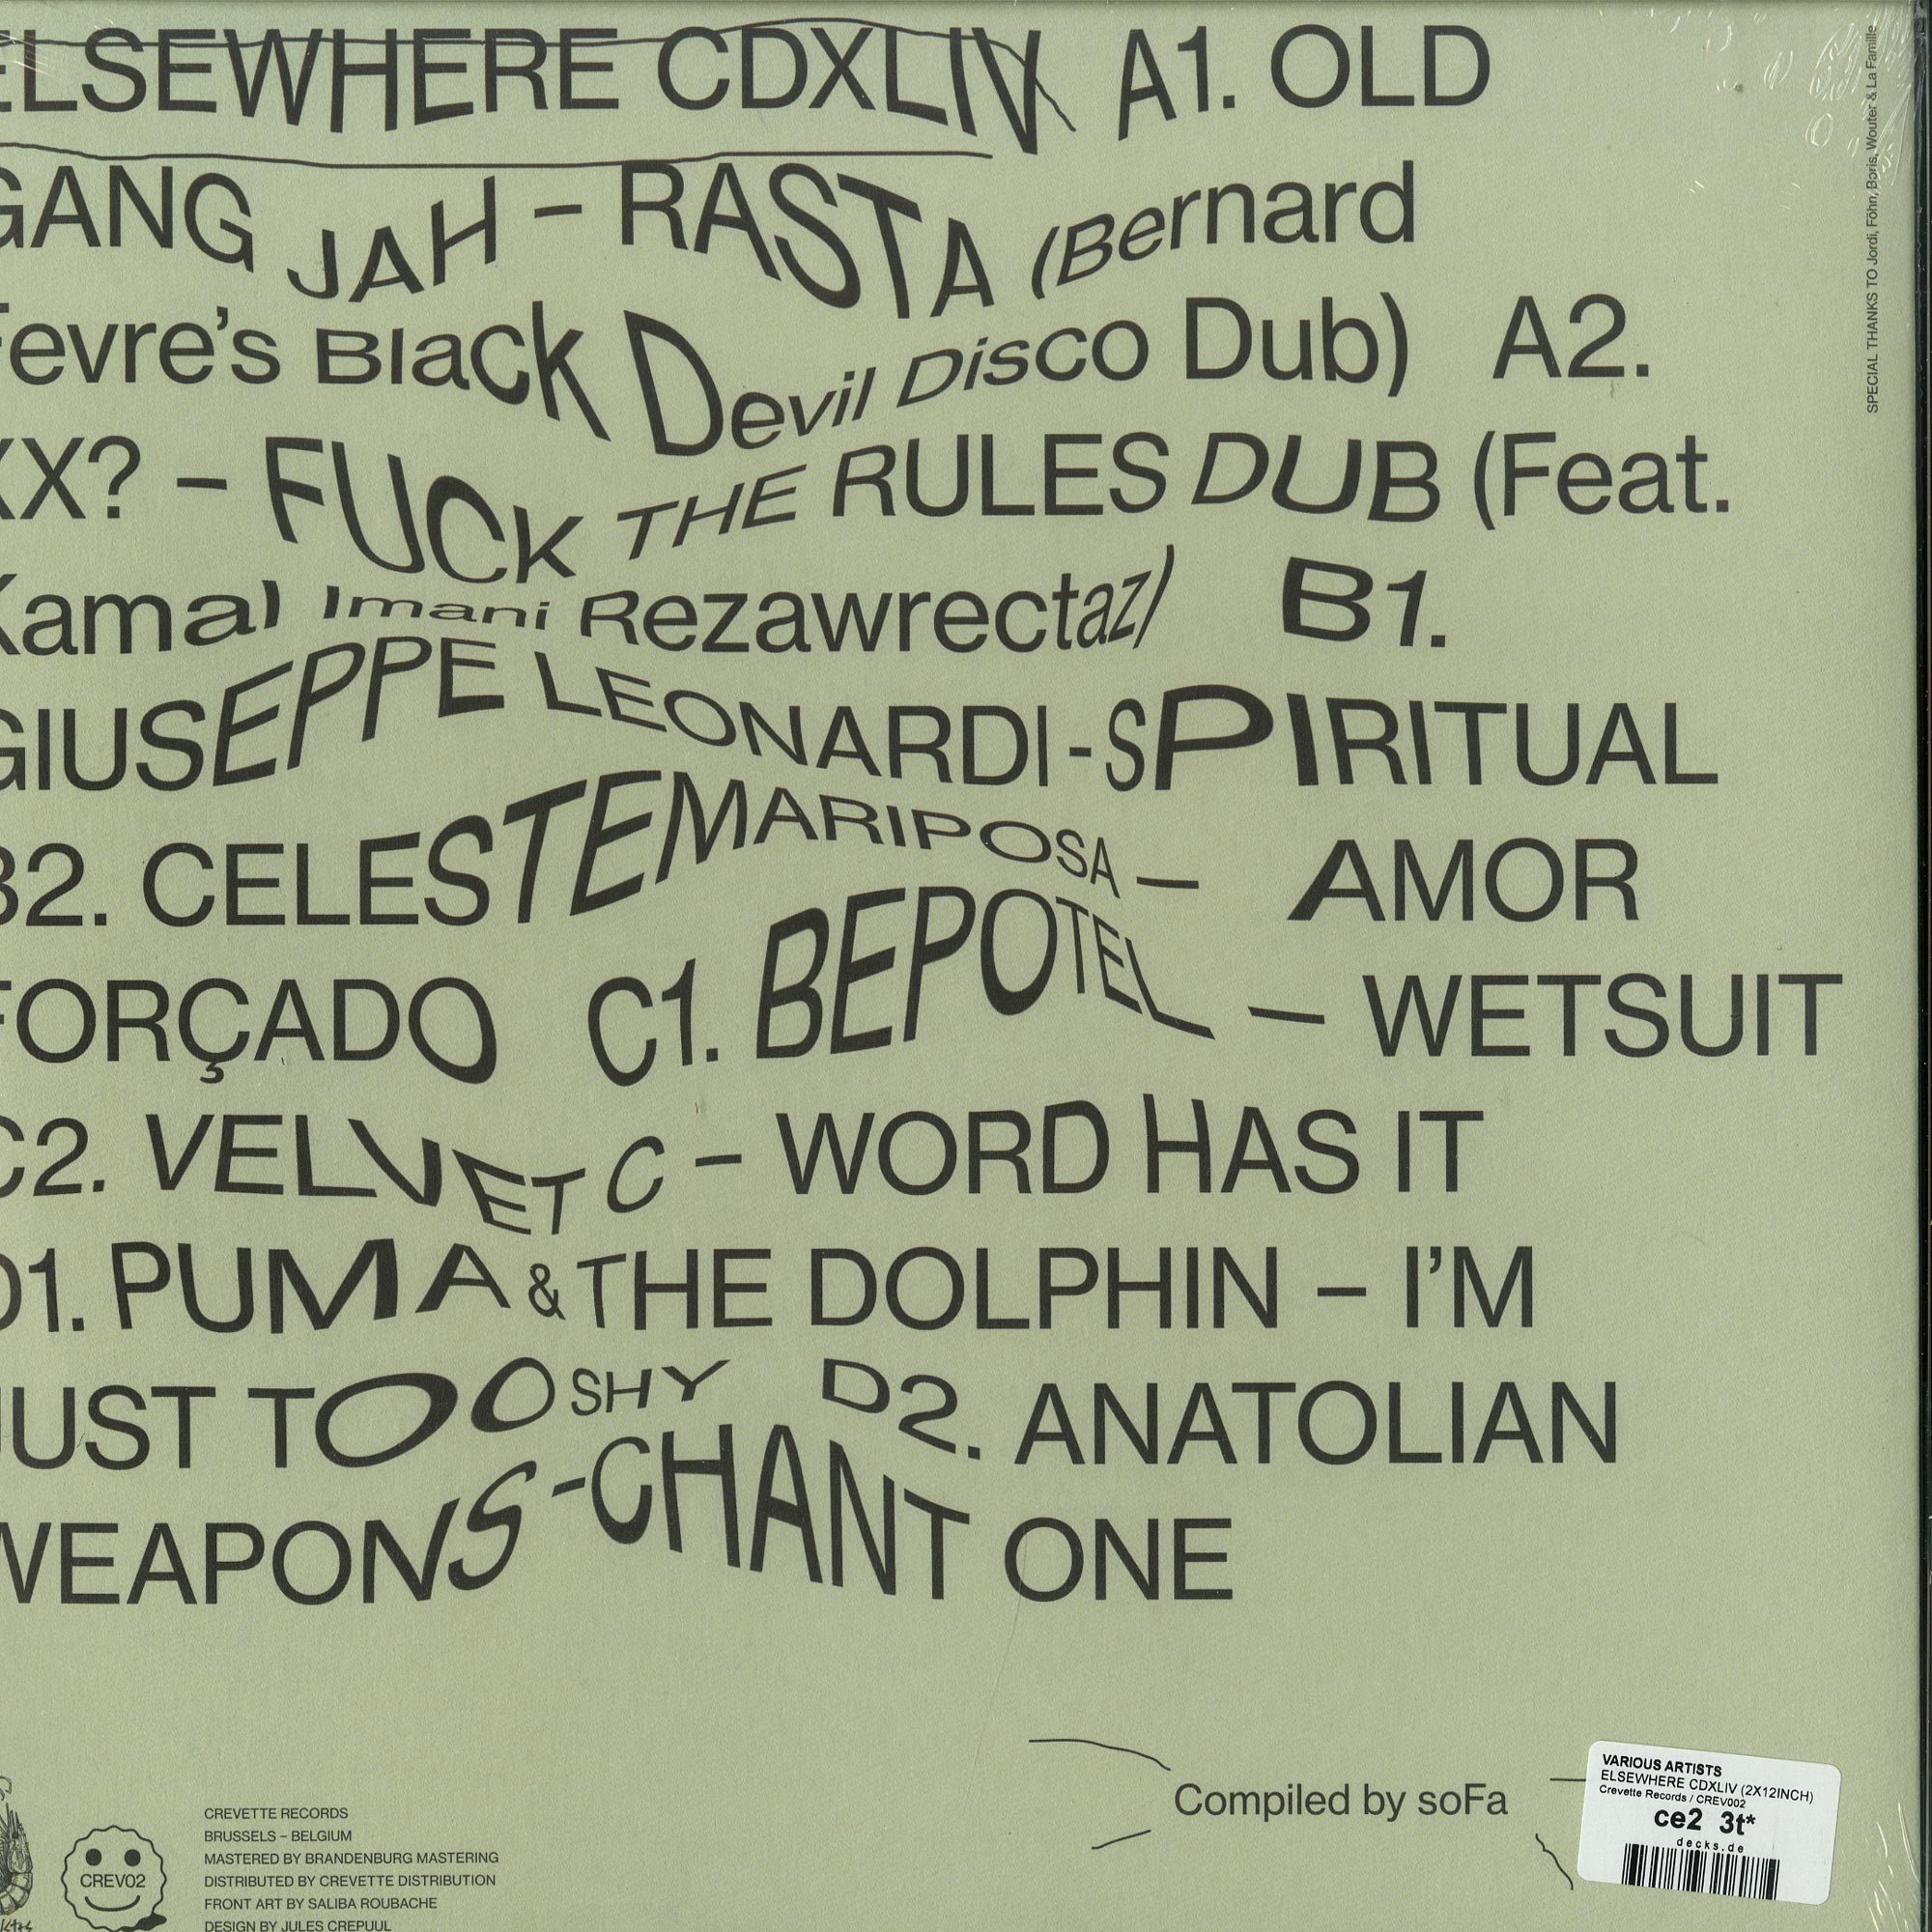 ELSEWHERE CDXLIV A1. OLD
GANG JAH – RASTA (Bernard
Fevre's Black Devil Disco Dub) A2.
XX? – FUCK THE RULES DUB (Feat.
Kamal Imani Rezawrectaz) B1.
GIUSEPPE LEONARDI - SPIRITUAL
B2. CELESTEMARIPOSA – AMOR
FORÇADO C1. BEPOTEL – WETSUIT
C2. VELVET C – WORD HAS IT
D1. PUMA & THE DOLPHIN – I'M
JUST TOO SHY D2. ANATOLIAN
WEAPONS - CHANT ONE
SPECIAL THANKS TO Jordi, Föhn, Boris, Wouter & La Famille
Compiled by soFa
CREV02
CREVETTE RECORDS
BRUSSELS – BELGIUM
MASTERED BY BRANDENBURG MASTERING
DISTRIBUTED BY CREVETTE DISTRIBUTION
FRONT ART BY SALIBA ROUBACHE
DESIGN BY JULES CREPUUL
VARIOUS ARTISTS
ELSEWHERE CDXLIV (2X12INCH)
Crevette Records / CREV002
ce2 3t*
decks.de